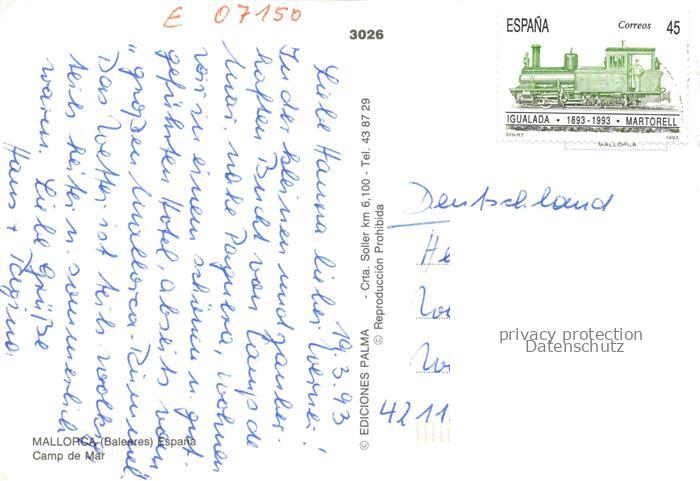 E 07150
3026
19.3.93
Liebe Hanna, lieber Werner!
In der kleinen und zauber-
haften Bucht von Camp de
Mar, nahe Paguera, wohnen
wir in einem schönen u. gut-
geführten Hotel, abseits vom
"großen Mallorca-Rummel".
Das Wetter ist teils wolkig
teils heiter u. sommerlich
warm. Liebe Grüße
Hans +
MALLORCA (Baleares) España
Camp de Mar
© EDICIONES PALMA - Crta. Soller km 6,100 - Tel. 43 87 29
© Reproducción Prohibida
ESPAÑA Correos 45
IGUALADA · 1893-1993 · MARTORELL
1993
MALLORCA
Deutschland
He
privacy protection
Datenschutz
4211